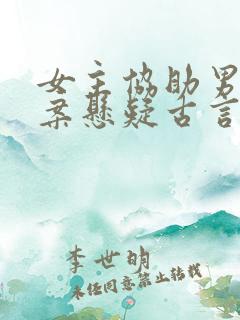 女主协助男
案悬疑古言
李世明
未经同意禁止转载